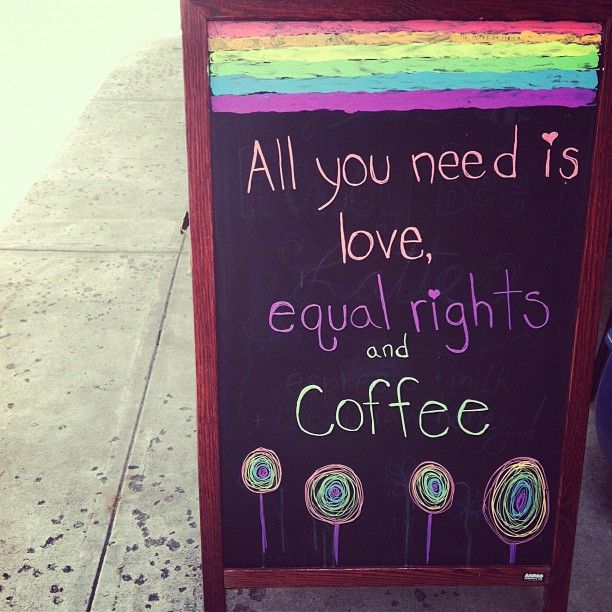 All you need is
love,
equal rights
and
Coffee
AARCO